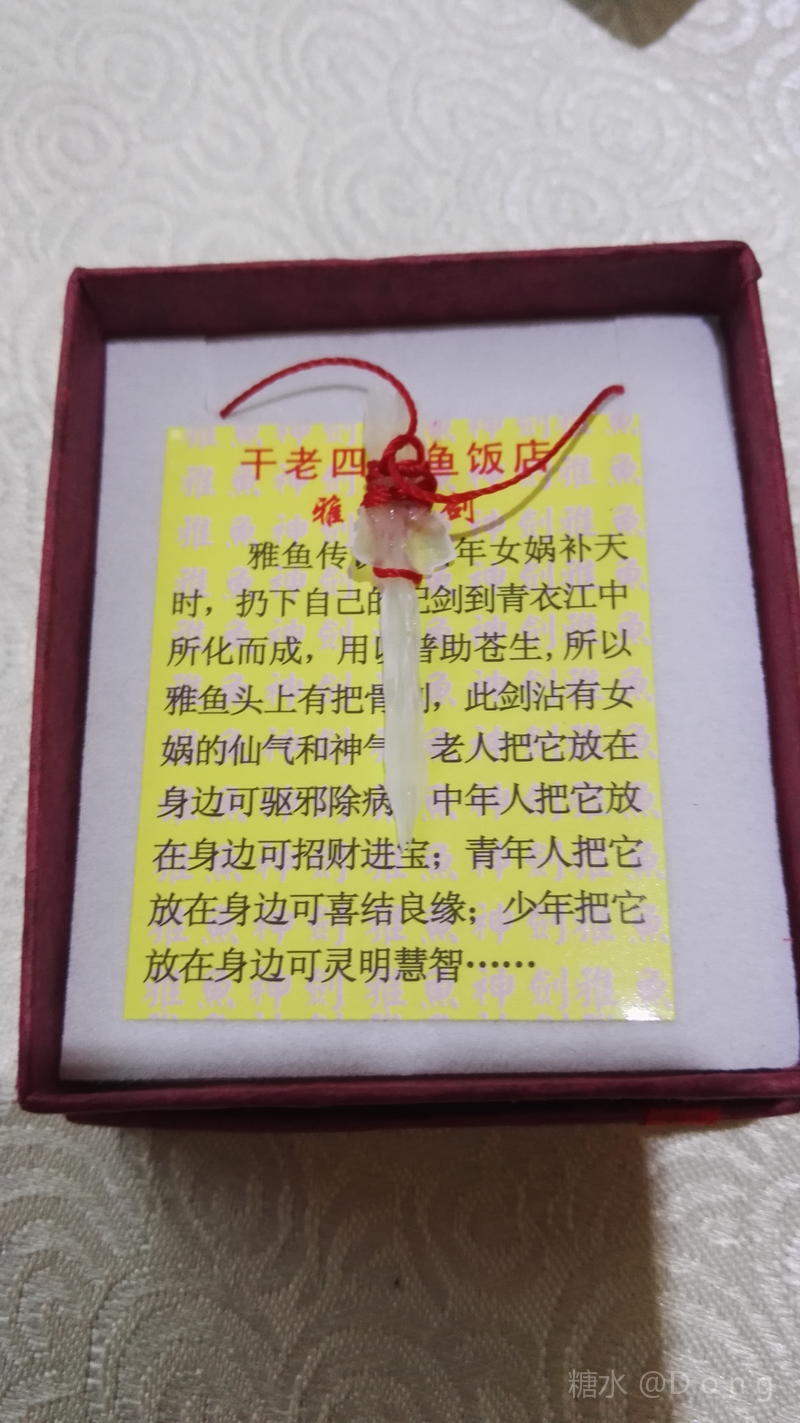 干老四 鱼饭店
雅 剑
雅鱼传 年女娲补天
时，扔下自己的 剑到青衣江中
所化而成，用以普助苍生，所以
雅鱼头上有把骨剑，此剑沾有女
娲的仙气和神气 老人把它放在
身边可驱邪除病 中年人把它放
在身边可招财进宝；青年人把它
放在身边可喜结良缘；少年把它
放在身边可灵明慧智……
糖水 @Dong